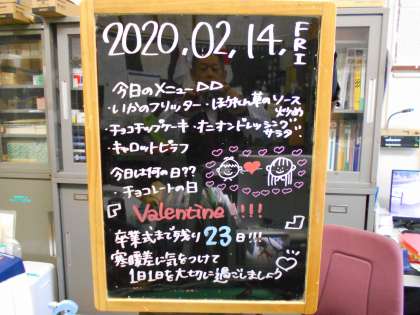 2020.02.14. FRI
今日のメニュー▷▷
・いかのフリッター・ほうれん草のソース炒め
・チョコチップケーキ・オニオンドレッシングサラダ
・キャロットピラフ
今日は何の日??
・チョコレートの日
Valentine!!!!
卒業式まで残り23日!!!
寒暖差に気をつけて
1日1日を大切に過ごしましょう♡